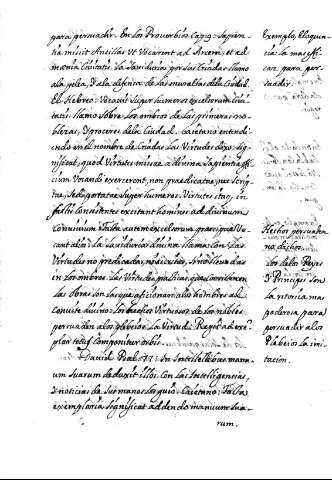 para persuadir. En los Proverbios Cap. 9. Sapien-
tia misit Ancillas ut Vocarent ad Arcem, et ad
moenia Civitatis. La Sauiduria por sus Criadas llamo
ala plea, y ala defensa de las murallas dela Ciudad.
El Hebreo: Vocauit super humeros excelsorum Ciui-
tatis. llamo sobre los ombros de las primeras no-
blezas, y proceres dela Ciudad. Caietano entendi-
endo en el nombre de Criadas las Virtudes dixo: Sig-
nificat, quod Virtutes missae a diuina Sapientia offi-
cium Vocandi exercerent, non praedicatae, nec scrip-
tae, sed portatae super humeros. Virtutes itaq, in
factis Consistentes excitant homines ad diuinum
Conuiuium. Facta autem excelsorum praecipua Vo-
cant. dixo: La Sauiduria diuina llamo con las
Virtudes no predicadas, ni escritas, sino lleuadas
en los ombros. Las Virtudes practicas, que Consisten en
las Obras son las que aficionan alos hombres al
Conuite diuino. los hechos Virtuosos de los nobles
persuaden alos plebeios la Virtud. Regis ad exem-
plar totus Componitur orbis.
David Psal. 77. In Intellectibus manu-
um suarum deduxit illos. Con las Intelligencias,
y noticias de sus manos los guió. Caietano: Facta
exemplaria Significat addendo manuum sua-
rum.
exemplo, Eloquen-
cia la mas effi-
caz para per-
suadir.
Hechos persuaden
no dichos.
Los delos Reyes
y Principes son
la retorica mas
poderosa para
persuadir alos
Plebeios la imi-
tacion.